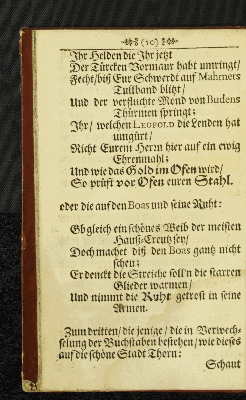 (10)
Ihr Helden die Ihr jetzt
Der Türcken Vormaur habt umringt/
Fecht/ biß Eur Schwerdt auf Mahmets
Tulband blitzt/
Und der verfluchte Mond von Budens
Thürmen springt;
Ihr/ welchen LEOPOLD die Lenden hat
umgürt/
Richt Eurem Herrn hier auf ein ewig
Ehrenmahl;
Und wie das Gold im Ofen wird/
So prüft vor Ofen euren Stahl.
oder die auf den Boas und seine Ruht:
Ob gleich ein schönes Weib der meisten
Hauß-Creutz sey/
Doch machet diß den Boas gantz nicht
scheu;
Er denckt die Streiche soll'n die starren
Glieder warmen/
Und nimmt die Ruht getrost in seine
Armen.
Zum dritten/ die jenige/ die in Verwech-
selung der Buchstaben bestehen/ wie dieses
auf die schöne Stadt Thorn:
Schaut